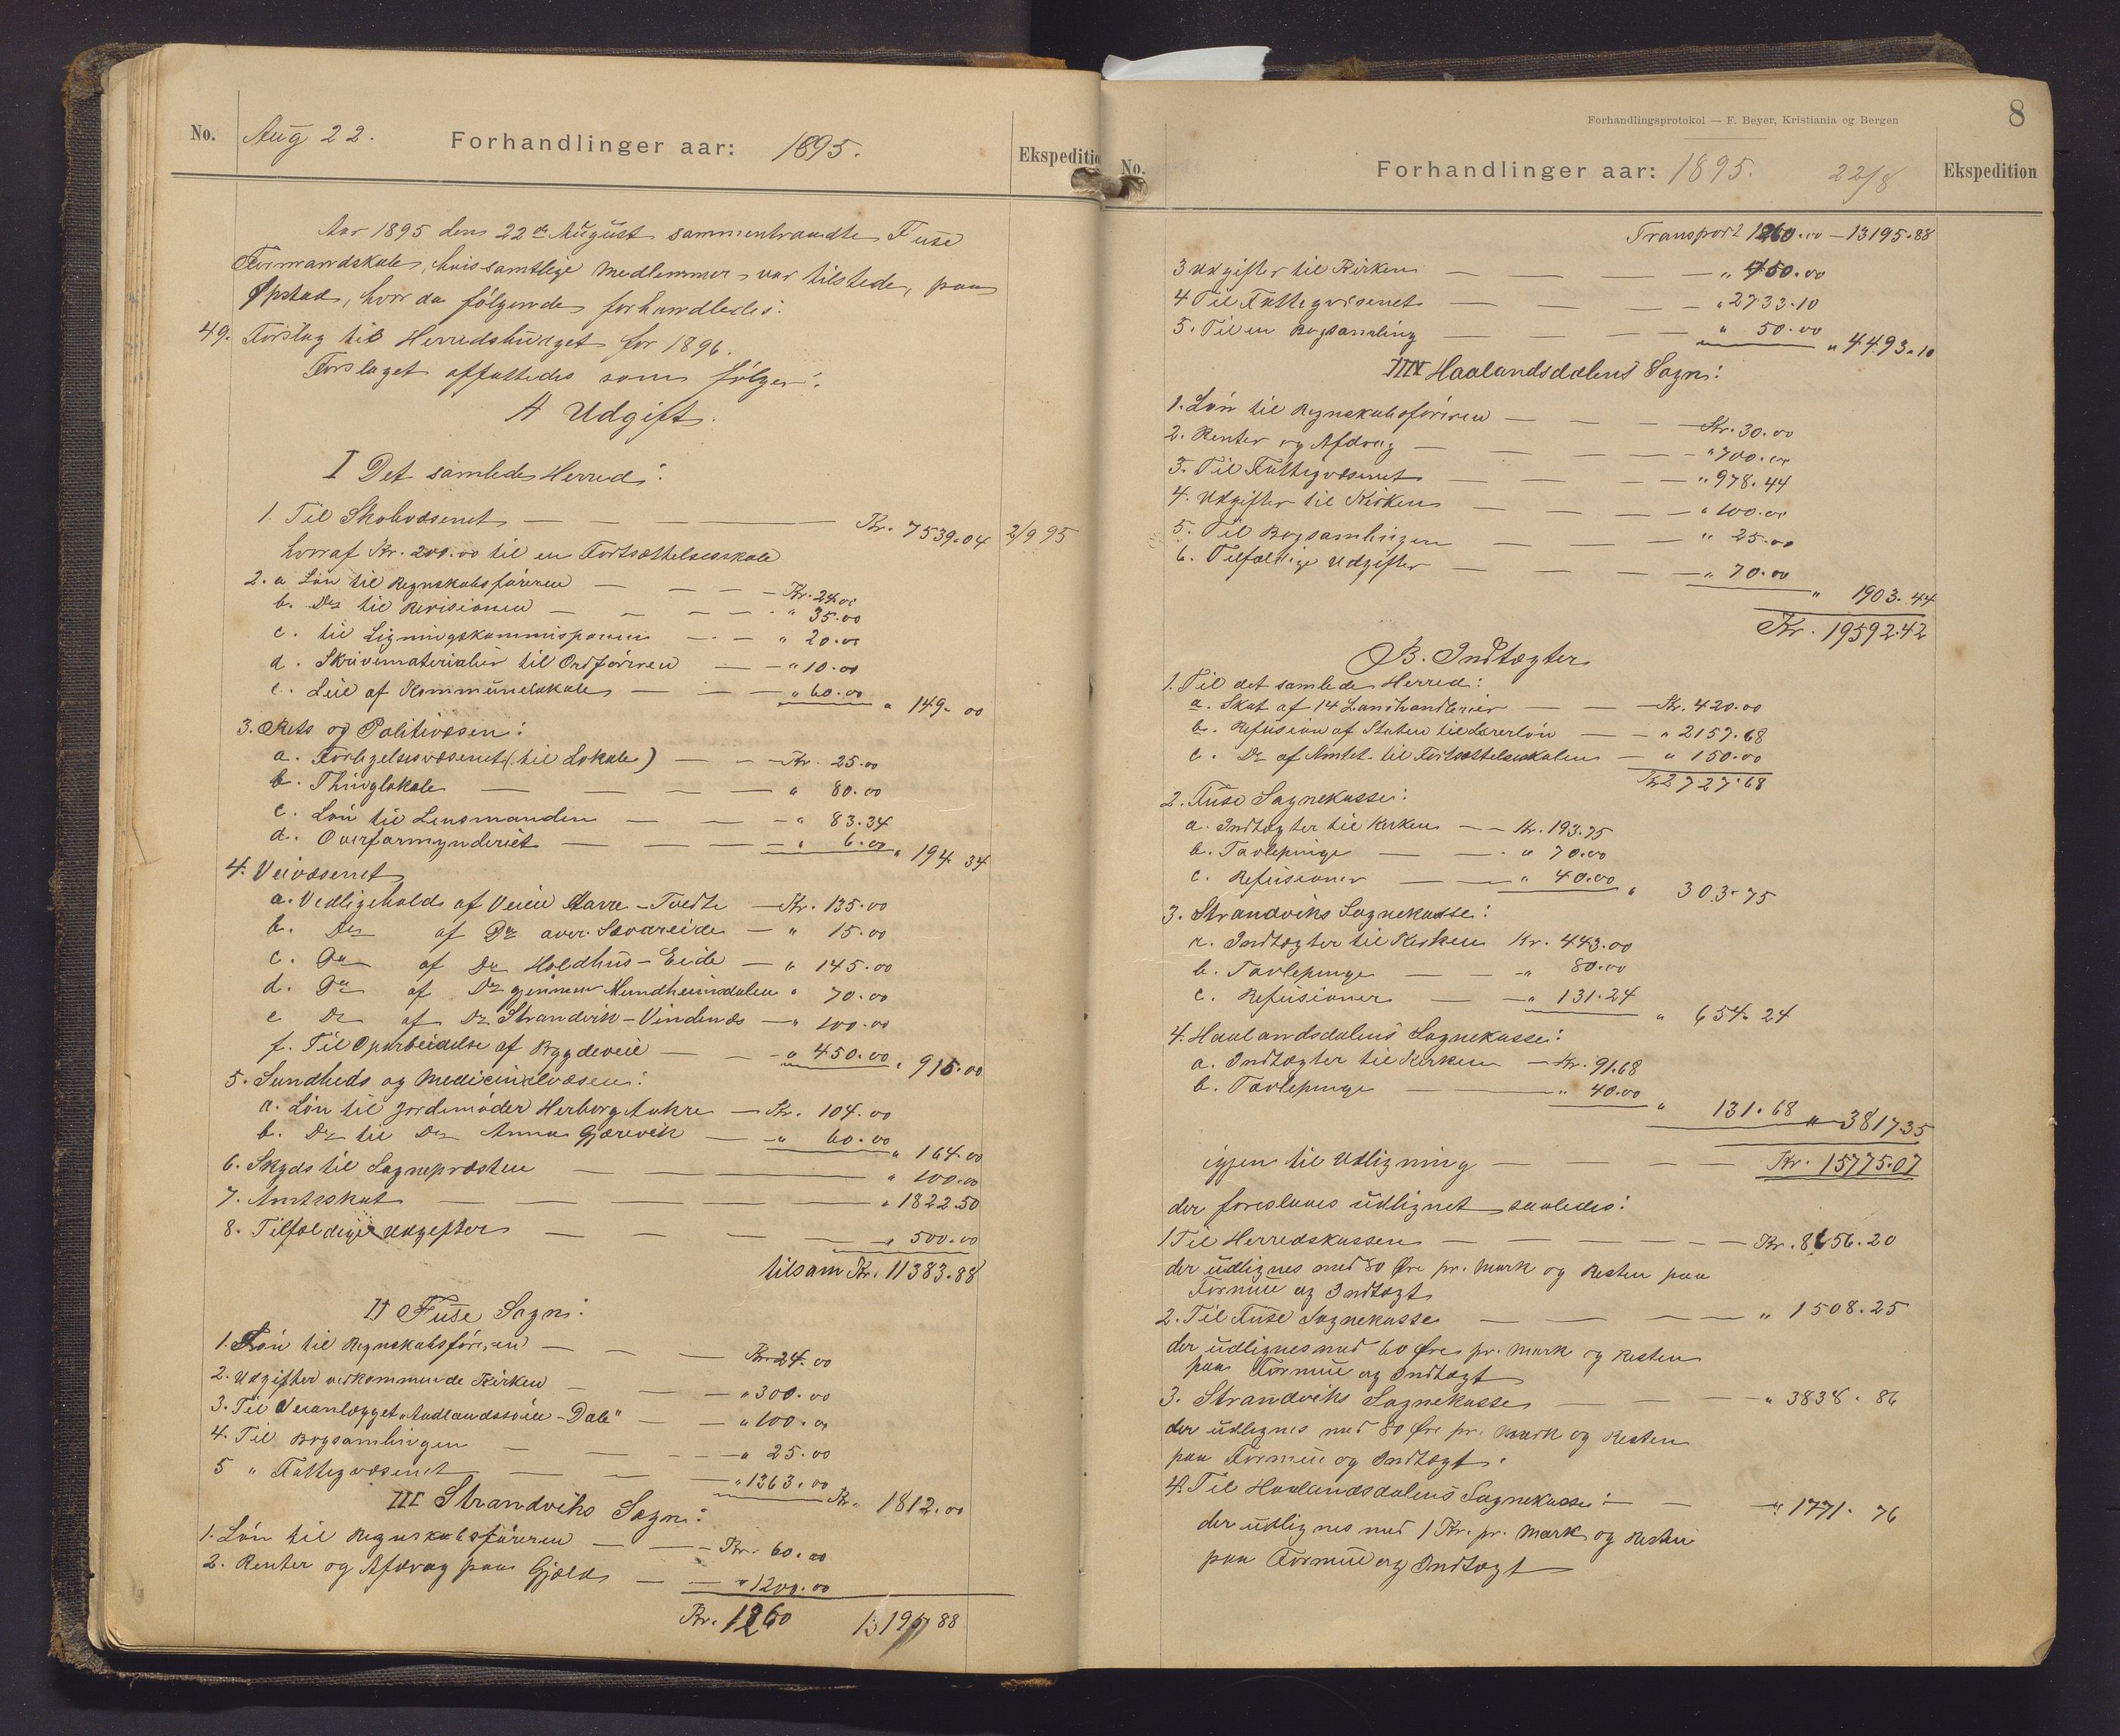 No. Aug 22. Forhandlinger aar: 1895. Ekspeditio
Aar 1895 den 22de August sammentraadte Fuse
Formandskab, hvis samtlige Medlemmer var tilstede, paa
Opstad, hvor da følgende forhandledes:
49. Forslag til Herredsbudget for 1896.
Forslaget affattedes som følger:
A Udgift.
I Det samlede Herred:
1. Til Skolevæsenet — — — Kr. 7539.04 2/9 95
hvoraf Kr. 200.00 til en Fortsættelsesskole
2. a Løn til Regnskabsføreren — — — Kr. 24.00
b. Do til Revisionen — — — " 35.00
c. til Ligningskommissionen — — " 20.00
d. Skrivematerialier til Ordføreren — — " 10.00
e. Leie af Kommunelokale — — — " 60.00 " 149.00
3. Rets og Politivæsen:
a. Forligelsesvæsenet (til Lokale) — — Kr. 25.00
b. Thinglokale — — — — " 80.00
c. Løn til Lensmanden — — — " 83.34
d. Overformynderiet — — — " 6.00 " 194.34
4. Veivæsenet
a. Vedligehold af Veien Marre - Tvedte — Kr. 135.00
b. Do af Do over Sævareide — " 15.00
c. Do af Do Holdhus - Eide — " 145.00
d. Do af Do gjennem Mundheimsdalen " 70.00
e Do af Do Strandvik - Vindenæs — " 100.00
f. Til Oparbeidelse af Bygdeveie — — " 450.00 " 915.00
5. Sundheds og Medicinalvæsen:
a. Løn til Jordemøder Herborg Aakre — Kr. 104.00
b. Do til Do Anna Gjærevik — " 60.00 " 164.00
6. Skyds til Sognepræsten — — " 100.00
7. Amtsskat — — — — " 1822.50
8. Tilfældige Udgifter — — — — " 500.00
tilsam Kr. 11383.88
II Fuse Sogn:
1. Løn til Regnskabsføreren — — — Kr. 24.00
2. Udgifter vedkommende Kirken — — — " 300.00
3. Til Veianlægget „ - Dale" — — " 100.00
4. Til Bogsamlingen — — — " 25.00
5 " Fattigvæsenet — — — " 1363.00 Kr. 1812.00
III Strandviks Sogn:
1. Løn til Regnskabsføreren — — — Kr. 60.00
2. Renter og Afdrag paa Gjæld — — " 1200.00
Kr. 1260 13195 88
Forhandlingsprotokol — F. Beyer, Kristiania og Bergen 8
No. Forhandlinger aar: 1895. 22/8 Ekspedition
Transport 1260.00 — 13195.88
3 Udgifter til Kirken — — — — " 450.00
4 Til Fattigvæsenet — — — " 2733.10
5. Til en Bogsamling — — — " 50.00 " 4493.10
IV Haalandsdalens Sogn:
1. Løn til Regnskabsføreren — — — — Kr. 30.00
2. Renter og Afdrag — — — — " 700.00
3. Til Fattigvæsenet — — — — " 978.44
4. Udgifter til Kirken — — — — " 100.00
5. Til Bogsamlingen — — — " 25.00
6. Tilfældige Udgifter — — — — " 70.00 " 1903.44
Kr. 19592.42
B. Indtægter
1. Til det samlede Herred:
a. Skat af 14 Landhandlerier — — Kr. 420.00
b. Refusion af Staten til Lærerløn — — " 2157.68
c. Do af Amtet til Fortsættelsesskolen — " 150.00
Kr 2727.68
2. Fuse Sognekasse:
a. Indtægter til Kirken — — Kr. 193.75
b. Tavlepenge — — " 70.00
c. Refusioner — — " 40.00 " 303.75
3. Strandviks Sognekasse:
a. Indtægter til Kirken Kr. 443.00
b. Tavlepenge — — " 80.00
c. Refusioner — — " 131.24 " 654.24
4. Haalandsdalens Sognekasse:
a. Indtægter til Kirken — Kr. 91.68
b. Tavlepenge — " 40.00 " 131.68 " 3817.35
igjen til Udligning — — — — Kr. 15775.07
der foreslaaes udlignet saaledes:
1 Til Herredskassen — — — — Kr. 8656.20
der udlignes med 80 Øre pr. Mark og Resten paa
Formue og Indtægt
2. Til Fuse Sognekasse — — — — " 1508.25
der udlignes med 60 Øre pr. Mark og Resten
paa Formue og Indtægt
3. Strandviks Sognekasse — — — " 3838.86
der udlignes med 80 Øre pr. Mark og Resten
paa Formue og Indtægt.
4. Til Haalandsdalens Sognekasse: — — " 1771.76
der udlignes med 1 Kr. pr. Mark og Resten
paa Formue og Indtægt